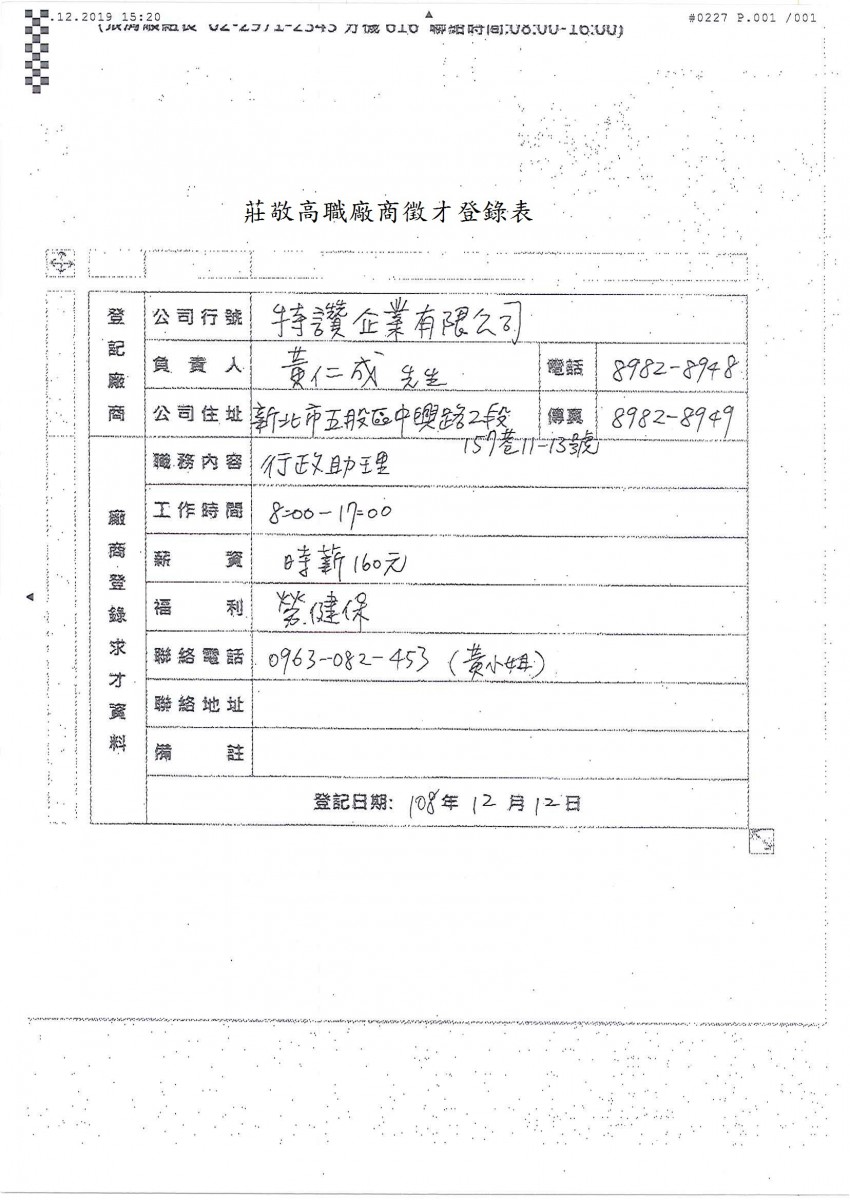 .12.2019 15:20 #0227 P.001 /001
02-2971-2343 分機 616 聯絡時間:08:00-16:00)
莊敬高職廠商徵才登錄表
登記廠商
公司行號 特讚企業有限公司
負責人 黃仁成 先生 電話 8982-8948
公司住址 新北市五股區中興路2段 傳真 8982-8949
157巷11-13號
廠商登錄求才資料
職務內容 行政助理
工作時間 8:00-17:00
薪資 時薪160元
福利 勞健保
聯絡電話 0963-082-453 (黃小姐)
聯絡地址
備註
登記日期: 108年 12月 12日